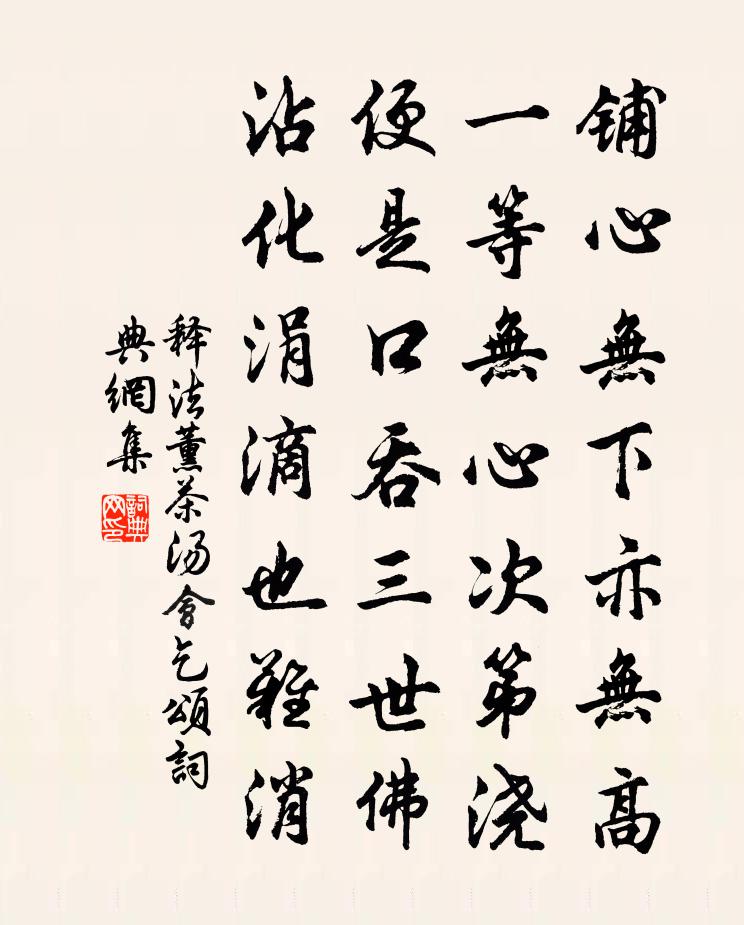 铺心無下亦無高
一等無心次第浇
便是口吞三世佛
沾化涓滴也難消
释法薰茶汤會乞頌詞
典網集
詞典
网印